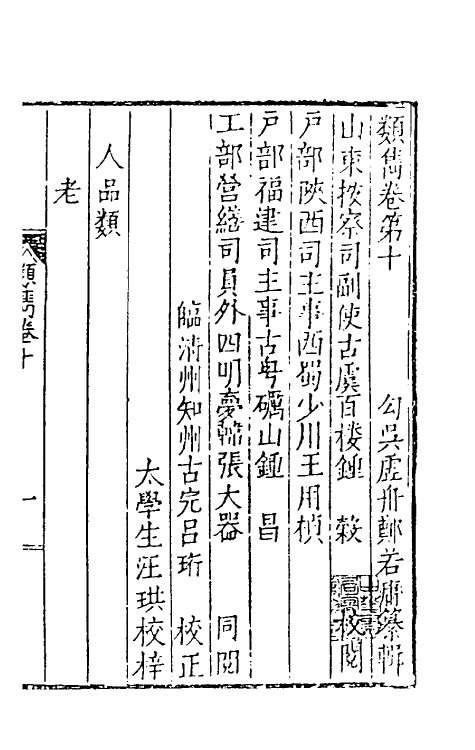 類雋卷第十　勾吳虛舟鄭若庸纂輯
山東按察司副使古虞百樓鍾　穀　校閱
戶部陝西司主事西蜀少川王用楨
戶部福建司主事古粤礪山鍾　昌
工部營繕司員外四明臺山張大器　同閱
臨淸州知州古完呂珩　校正
太學生汪珙校梓
人品類
老
類雋卷十
一